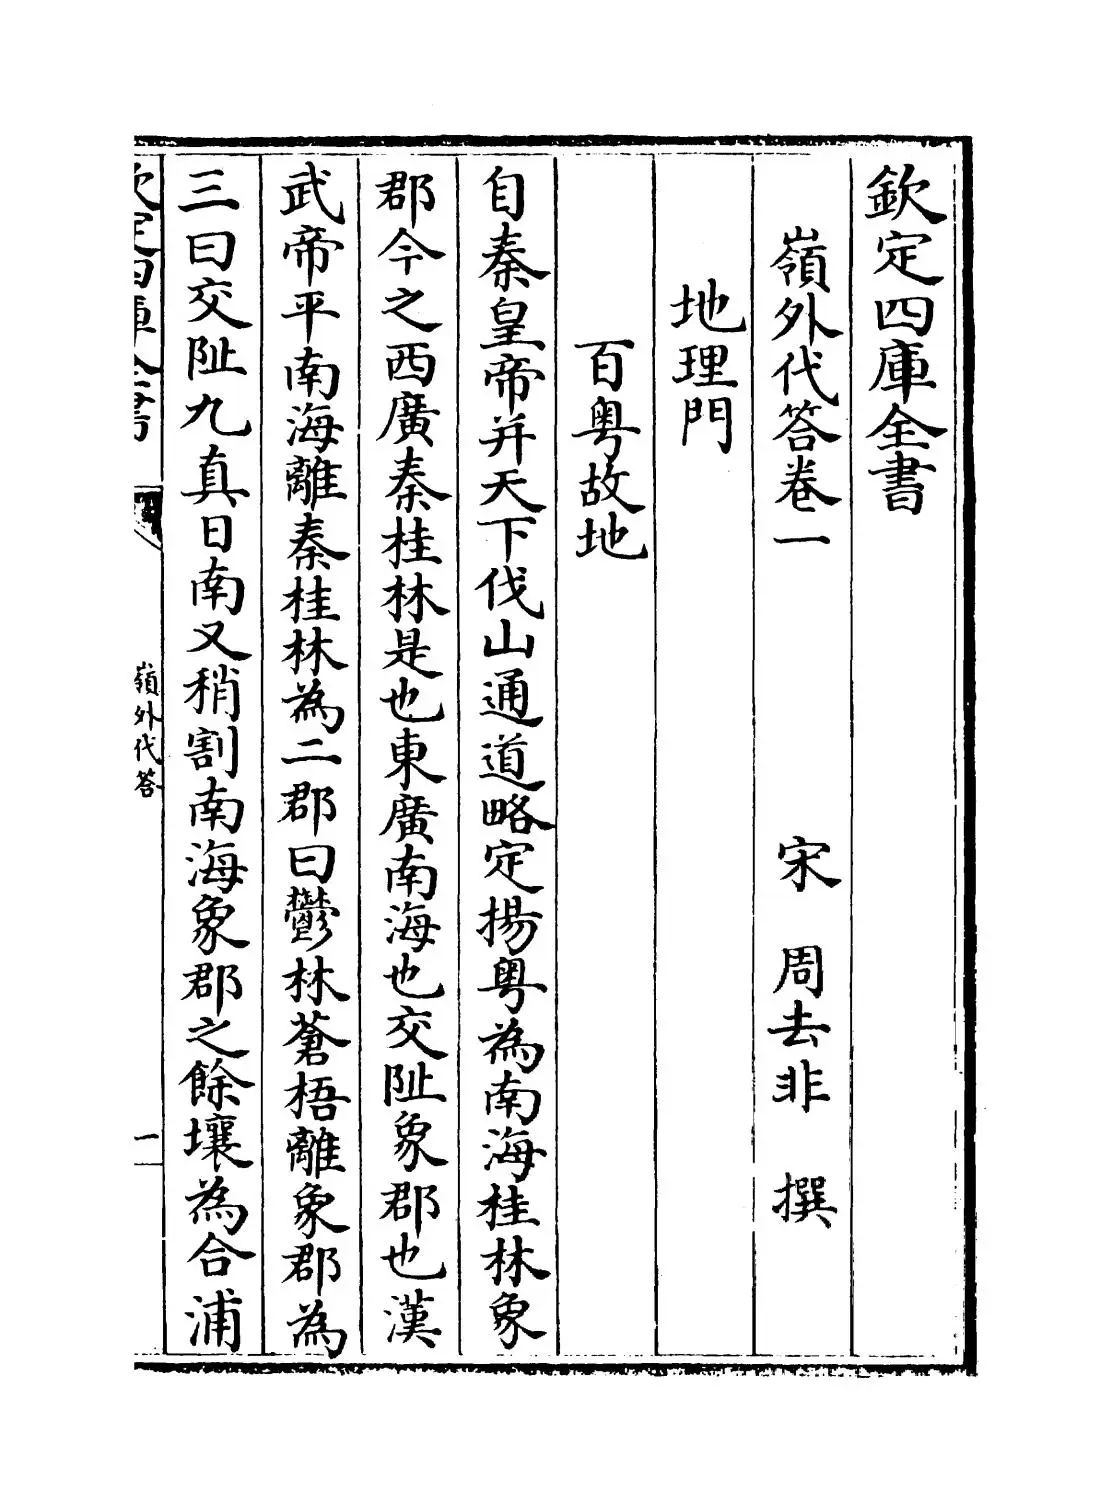 欽定四庫全書
嶺外代答卷一
宋 周去非 撰
地理門
百粤故地
自秦皇帝并天下伐山通道略定揚粤為南海桂林象
郡今之西廣秦桂林是也東廣南海也交阯象郡也漢
武帝平南海離秦桂林為二郡曰鬱林蒼梧離象郡為
三曰交阯九真日南又稍割南海象郡之餘壤為合浦
欽定四庫全書
嶺外代答
一